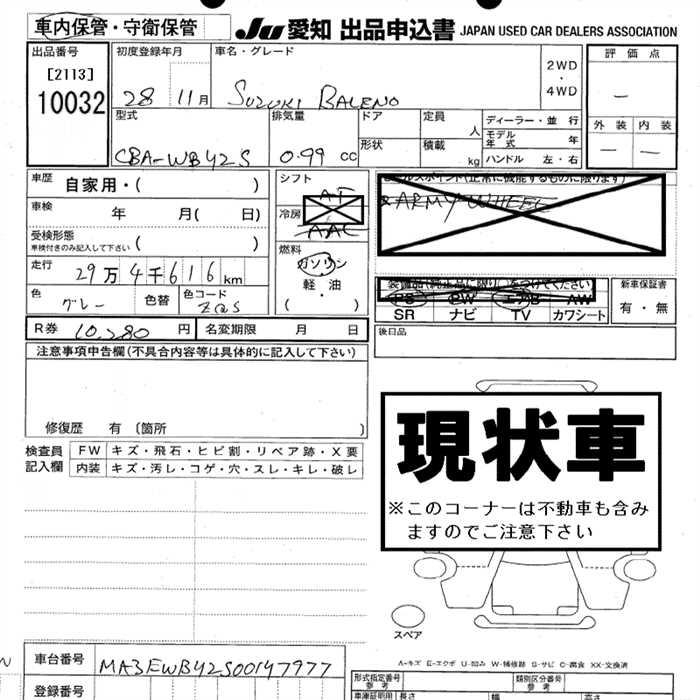 車内保管・守衛保管
JU 愛知 出品申込書 JAPAN USED CAR DEALERS ASSOCIATION
出品番号
[2113]
10032
初度登録年月
28 11月
車名・グレード
SUZUKI BALENO
2WD
・
4WD
評価点
―
外装 内装
― ―
型式
CBA-WB42S
排気量
0.99 cc
ドア
形状
定員
人
積載
kg
ディーラー・並行
モデル年式 年
ハンドル 左・右
車歴 自家用・( )
車検 年 月( 日)
受検形態
車検付きのみ記入して下さい ( )
走行
29万4千616km
色
グレー
色替
色コード
ZQS
シフト
AT
冷房
AAC
燃料
ガソリン
軽・油
( )
セールスポイント(正常に機能するものに限ります)
ARMY WHEEL
装備品(純正品に限り○をつけてください)
PS PW エアB AW
SR ナビ TV カワシート
新車保証書
有・無
R券 10,280 円
名変期限 月 日
後日品
注意事項申告欄(不具合内容等は具体的に記入して下さい)
修復歴 有 (箇所 )
検査員
記入欄
FW キズ・飛石・ヒビ割・リペア跡・X要
内装 キズ・汚レ・コゲ・穴・スレ・キレ・破レ
現状車
※このコーナーは不動車も含み
ますのでご注意下さい
スペア
A-キズ E-エクボ U-凹み W-補修跡 S-サビ C-腐食 XX-交換済
車台番号 MA3EWB42S00147977
登録番号
形式指定番号
参考
類別区分番号
参考
車庫証明用 長さ
参考
幅
高さ